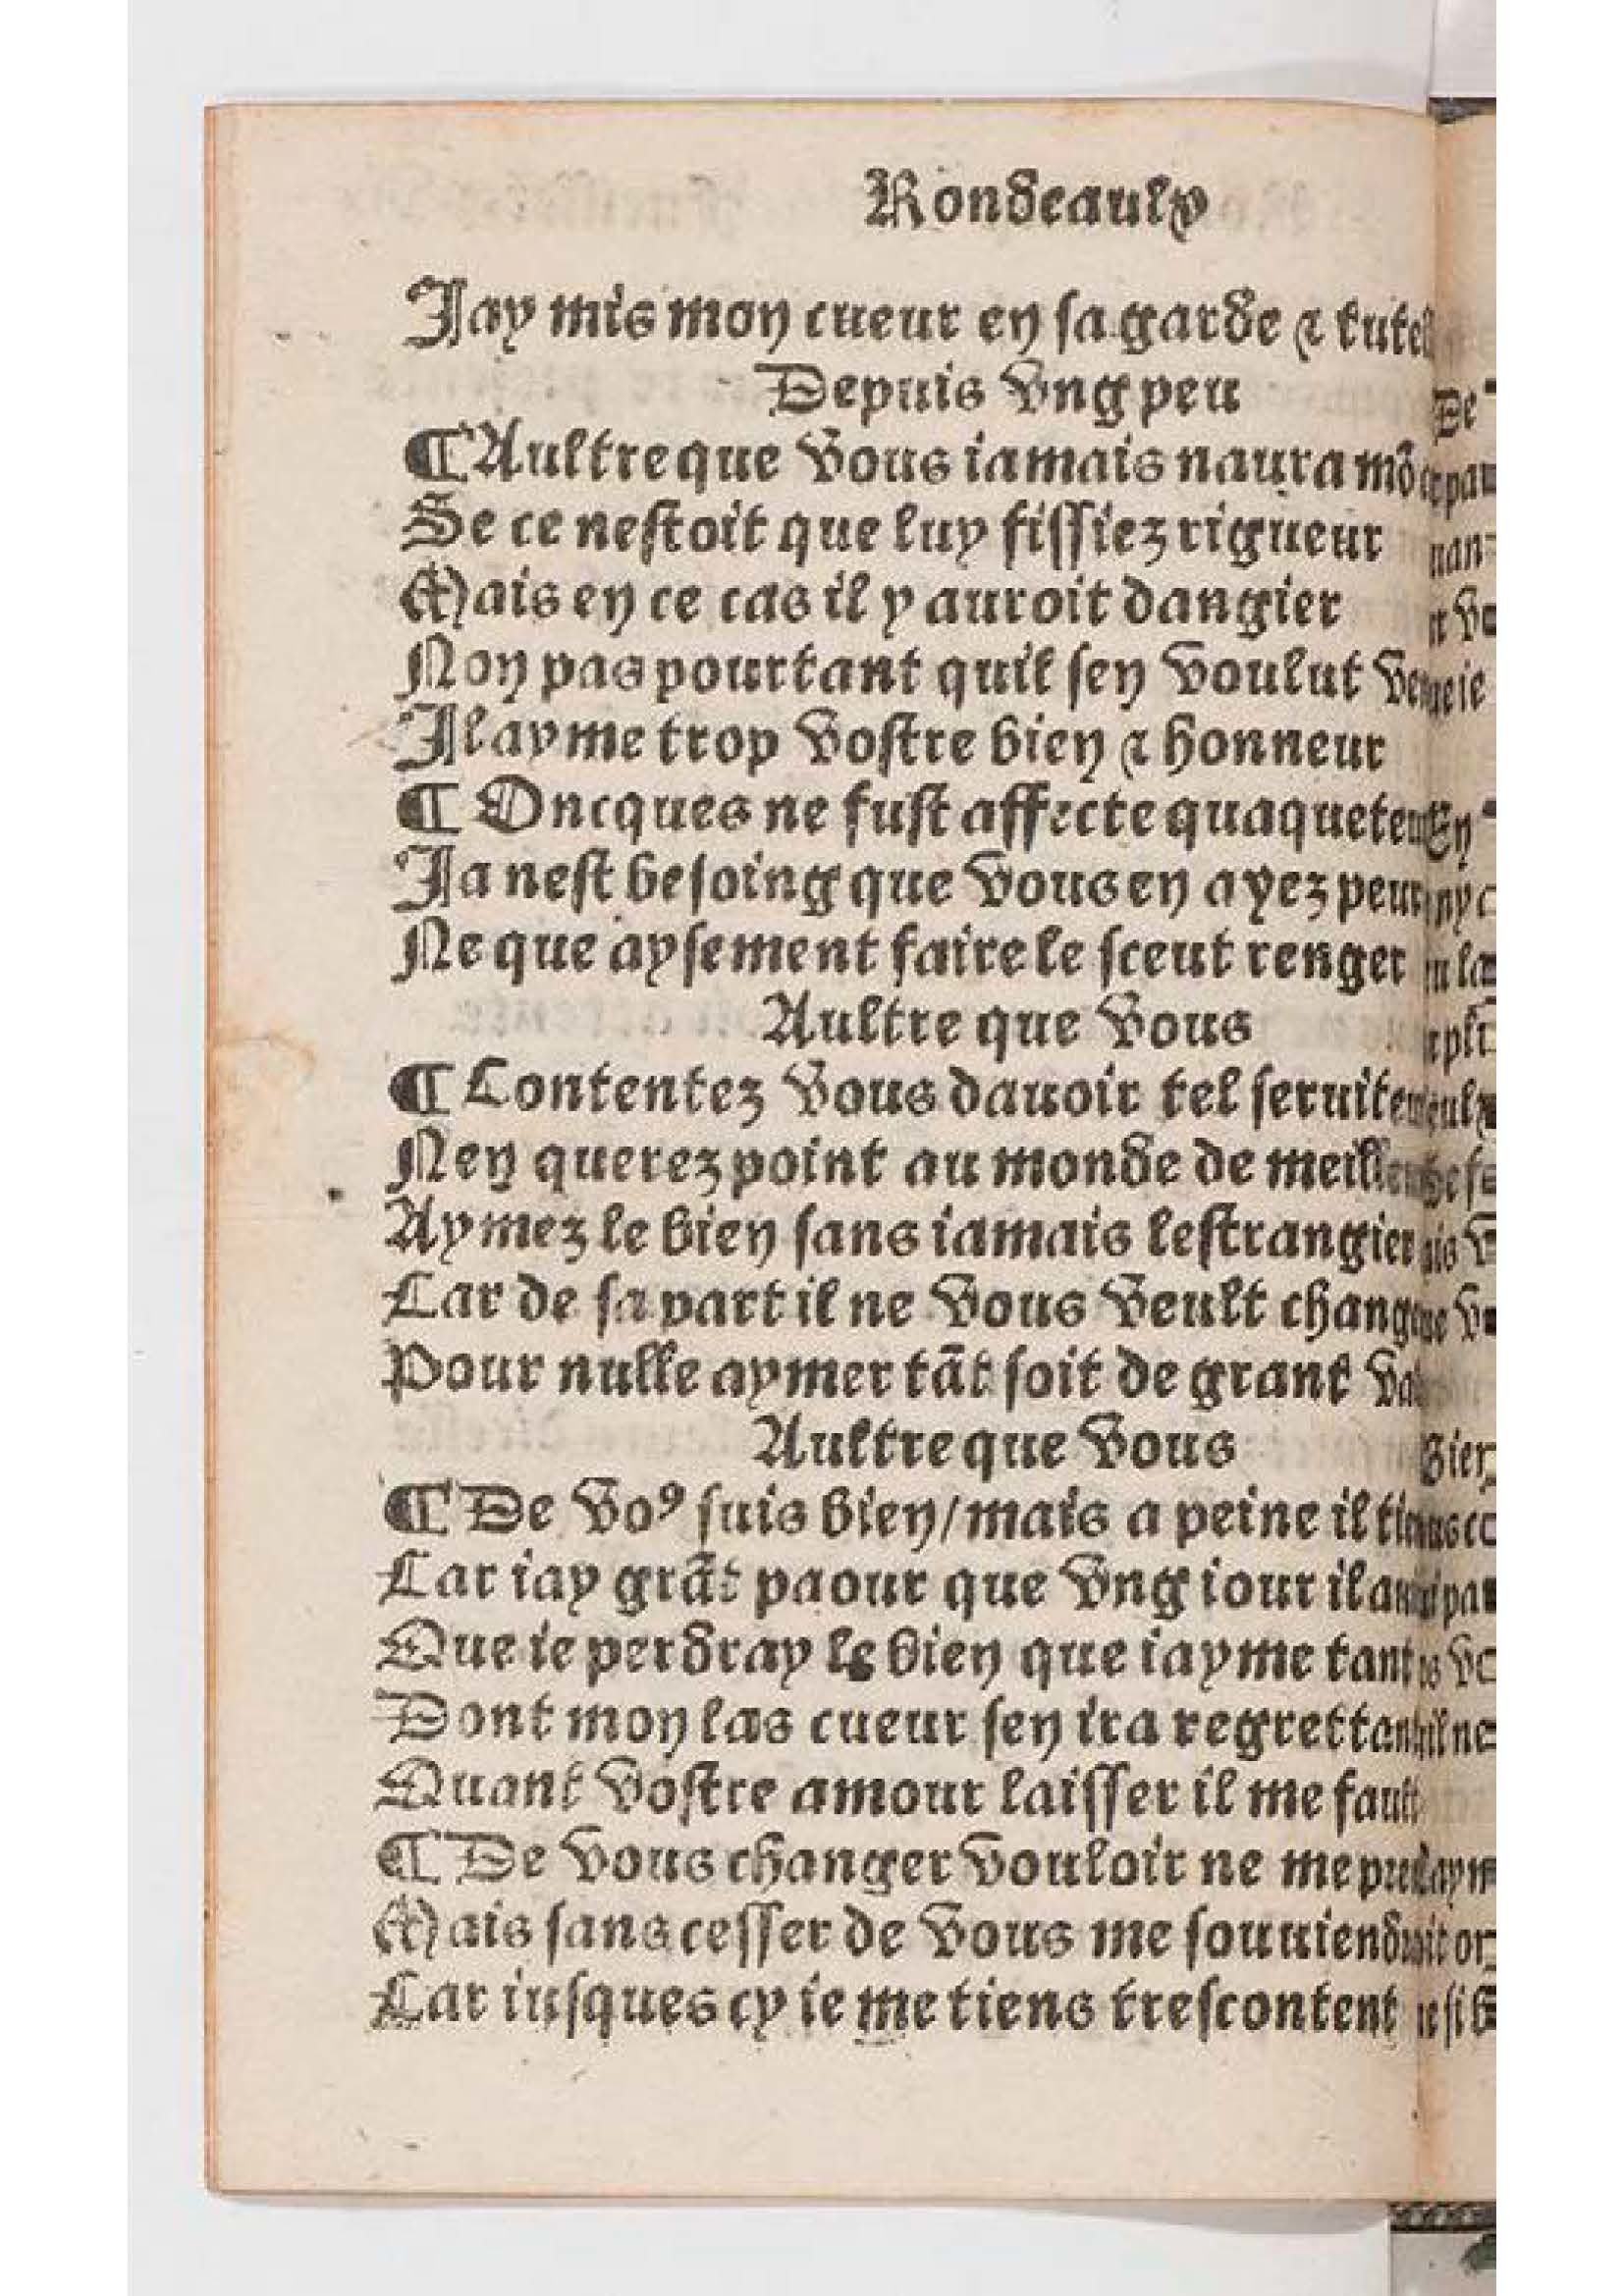 Rondeaulx
Jay mis mon cueur en sa garde ⁊ tutel
Depuis vng peu
¶ Aultre que vous iamais naura mõ
Se ce nestoit que luy fissiez rigueur
Mais en ce cas il y auroit dangier
Non pas pourtant quil sen voulut
Il ayme trop vostre bien ⁊ honneur
¶ Oncques ne fust affecte
Ja nest besoing que vous en ayez peur
Ne que aysement faire le sceut renger
Aultre que vous
¶ Contentez vous dauoir tel
Nen querez point au monde de
Aymez le bien sans iamais lestrangier
Car de sa part il ne vous veult
Pour nulle aymer tãt soit de grant
Aultre que vous
¶ De voꝰ suis bien/mais a peine il
Car iay grãt paour que vng iour il
Que ie perdray le bien que iayme tant
Dont mon las cueur sen ira
Quant vostre amour laisser il me fault
¶ De vous changer vouloir ne me
Mais sans cesser de vous me
Car iusques cy ie me tiens trescontent